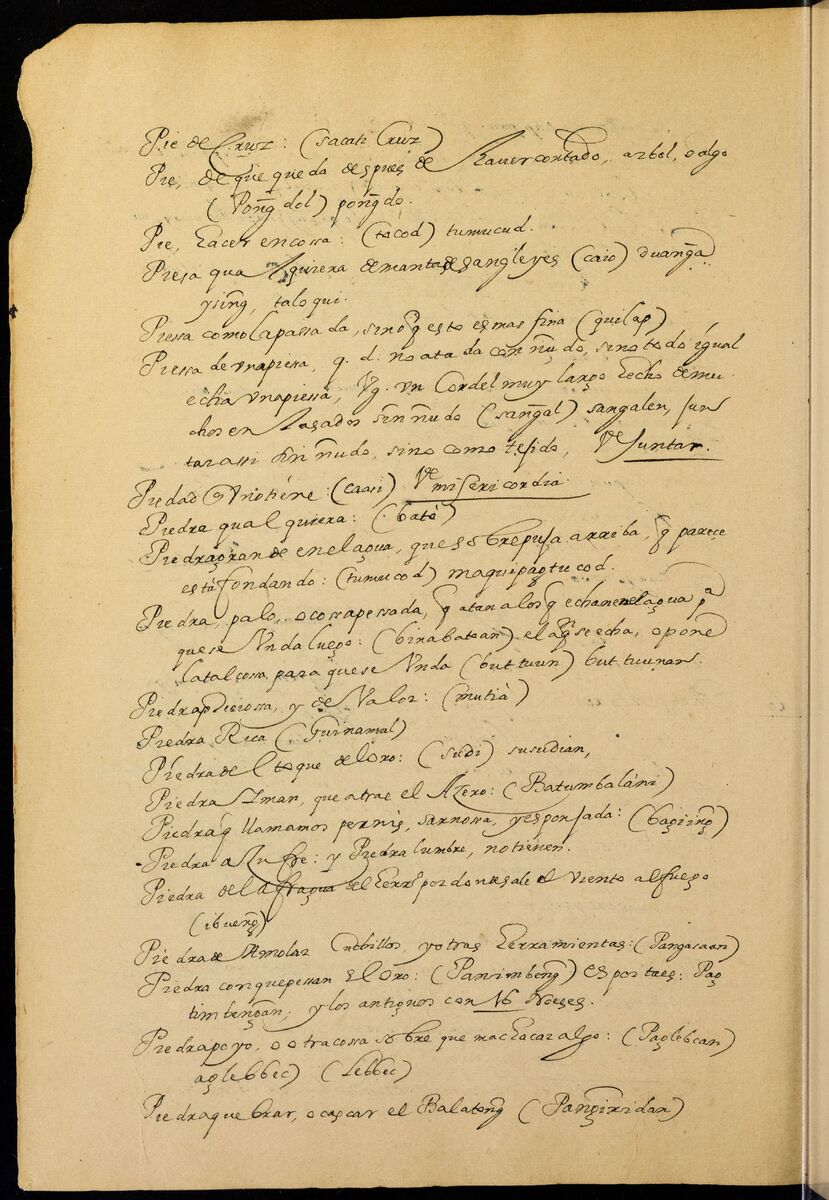 Pie de Cruz: (sacati Cruz)
Pie, de que queda despues de haver cortado, arbol, o algo
(Pong̃dol) pong̃do.
Pie, hacer en cossa: (tocod) tumucud.
Piesa qualquiera de mantas de sangleyes (caio) duang̃a
ysing̃, taloqui.
Piessa como la passada, sino q̃ esto es mas fina (quilap)
Piessa de una piessa, q. d. no atada con ñudo, sino todo igual
echia una piessa, Vg. un Cordel muy largo hecho de mu
chos en lasados sin ñudo (sang̃al) sangalen, jun
tar assi sin ñudo, sino como tejido, Vᵉ Juntar.
Piedad q̃ uno tiene (caasi) Vᵉ misericordia.
Piedra qualquiera: (bató)
Piedra grande en el agua, que sobrepuja arriba, q̃ parece
está fondando: (tumucod) maquipagtucod.
Piedra, palo, o cossa pessada, q̃ atan a los q̃ echan en el agua pᵃ
que se Unda luego: (binabatoan) el q̃ se echa, o pone
la tal cossa para que se Unda (buttuun) buttuunan.
Piedra preciossa, y de Valor: (mutià)
Piedra Rica (Guinamal)
Piedra del toque del Oro: (sudi) susudian,
Piedra Iman, que atrae el Azero: (Batumbaláni)
Piedra q̃ llamamos pernis, sarnossa, y esponjada: (bagiing̃)
Piedra asufre: y Piedra lumbre, no tienen.
Piedra de la fragua del herrᵒ por donde sale el viento al fuego
(ibueng̃)
Piedra de Amolar Cuchillos, y otras herramientas: (Pangasaan)
Piedra con que pessan el Oro: (Panimbeng̃) es por taes: Pag
timbeng̃an, y los antiguos con 16 Noeses.
Piedra poyo, o otra cossa sobre que machacar algo: (Paglebcan)
aglebbec) (Lebbec)
Piedra quebrar, o cascar el Balatong̃ (Pang̃iridan)